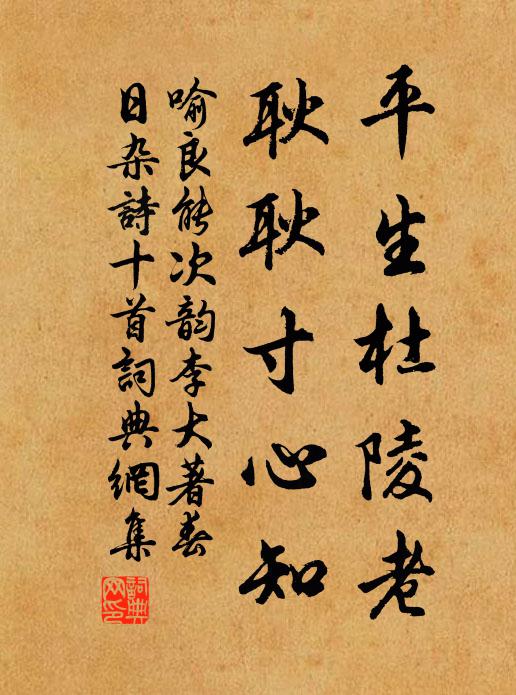 平生杜陵老
耿耿寸心知
喻良能次韵李大著春
日杂詩十首詞典網集
詞典网印